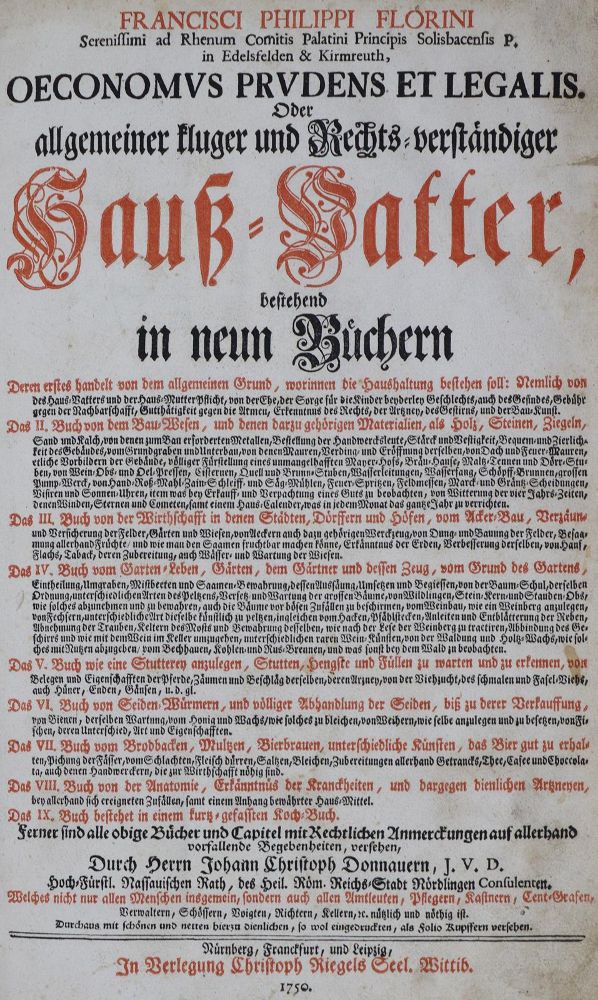 FRANCISCI PHILIPPI FLORINI
Serenissimi ad Rhenum Comitis Palatini Principis Solisbacensis P.
in Edelsfelden & Kirmreuth,
OECONOMVS PRVDENS ET LEGALIS.
Oder
allgemeiner kluger und Rechts-verständiger
Hauß-Vatter,
bestehend
in neun Buͤchern
Deren erstes handelt von dem allgemeinen Grund, worinnen die Haushaltung bestehen soll: Nemlich von
des Haus-Vatters und der Haus-Mutter Pflicht, von der Ehe, der Sorge für die Kinder beyderley Geschlechts, auch des Gesindes, Gebühr
gegen der Nachbarschafft, Gutthätigkeit gegen die Armen, Erkenntnus des Rechts, der Artzney, des Gestirns, und der Bau-Kunst.
Das II. Buch von dem Bau-Wesen, und denen darzu gehörigen Materialien, als Holz, Steinen, Ziegeln,
Sand und Kalch, von denen zum Bau erforderten Metallen, Bestellung der Handwercksleute, Stärck und Vestigkeit, Bequem- und Zierlich-
keit des Gebäudes, vom Grundgraben und Unterbau, von denen Mauren, Verding- und Eröffnung derselben, von Dach und Feuer-Mauren,
etliche Vorbildern der Gebäude, völliger Fürstellung eines unmangelhafften Mayer-Hofs, Bräu-Hause, Maltz-Tennen und Dörr-Stu-
ben, von Wein-Obs- und Oel-Pressen, Cisternen, Quell und Brunn-Stuben, Wasserleitungen, Wasserfang, Schöpf-Brunnen, grossen
Pump-Werck, von Hand-Roß-Mahl-Zain-Schleiff- und Säg-Mühlen, Feuer-Spritzen, Feldmessen, Marck- und Gräntz-Scheidungen,
Visiren und Sonnen-Uhren, item was bey Erkauff- und Verpachtung eines Guts zu beobachten, von Witterung der vier Jahrs-Zeiten,
denen Winden, Sternen und Cometen, samt einem Haus-Calender, was in jedem Monat das gantze Jahr zu verrichten.
Das III. Buch von der Wirthschafft in denen Städten, Dörffern und Höfen, vom Acker-Bau, Verzäun-
und Versicherung der Felder, Gärten und Wiesen, von Aeckern auch darzu gehörigen Werckzeug, von Dung- und Bauung der Felder, Besaa-
mung allerhand Früchte, und wie man den Saamen fruchtbar machen könne, Erkänntnus der Erden, Verbesserung derselben, von Hanf,
Flachs, Taback, deren Zubereitung, auch Wässer- und Wartung der Wiesen.
Das IV. Buch vom Garten-Leben, Gärten, dem Gärtner und dessen Zeug, vom Grund des Gartens,
Eintheilung, Umgraben, Mistbeeten und Saamen-Bewahrung, dessen Aussäung, Umsetzen und Begiessen, von der Baum-Schul, derselben
Ordnung, unterschiedlichen Arten des Peltzens, Versetz- und Wartung der grossen Bäume, von Wildlingen, Stein-Kern- und Stauden-Obs,
wie solches abzunehmen und zu bewahren, auch die Bäume vor bösen Zufällen zu beschirmen, vom Weinbau, wie ein Weinberg anzulegen,
von Fechsern, unterschiedliche Art dieselbe künstlich zu peltzen, ingleichen vom Hacken, Pfählstecken, Anleiten und Entblätterung der Reben,
Abnehmung der Trauben, Keltern des Mosts und Bewahrung desselben, wie nach der Lese der Weinberg zu tractiren, Abbindung des Ge-
schirrs und wie mit dem Wein im Keller umzugehen, unterschiedlichen raren Wein-Künsten, von der Waldung und Holtz-Wachs, wie sol-
ches mit Nutzen abzugeben, vom Bechhauen, Kohlen- und Rus-Brennen, und was sonst bey dem Wald zu beobachten.
Das V. Buch wie eine Stutterey anzulegen, Stutten, Hengste und Füllen zu warten und zu erkennen, von
Belegen und Eigenschafften der Pferde, Zäumen und Beschläg derselben, deren Arzney, von der Viehzucht, des schmalen und Fasel-Viehs,
auch Hüner, Enden, Gänsen, u. d. gl.
Das VI. Buch von Seiden-Würmern, und völliger Abhandlung der Seiden, biß zu derer Verkauffung,
von Bienen, derselben Wartung, vom Honig und Wachs, wie solches zu bleichen, von Weihern, wie selbe anzulegen und zu besetzen, von Fi-
schen, deren Unterschied, Art und Eigenschafften.
Das VII. Buch vom Brodbacken, Multzen, Bierbrauen, unterschiedliche Künsten, das Bier gut zu erhal-
ten, Pichung der Fässer, vom Schlachten, Fleisch dürren, Saltzen, Bleichen, Zubereitungen allerhand Getrancks, Thee, Cafee und Choccola-
ta, auch denen Handwerckern, die zur Wirthschafft nöthig sind.
Das VIII. Buch von der Anatomie, Erkänntnüs der Kranckheiten, und dargegen dienlichen Artzneyen,
bey allerhand sich ereigneten Zufällen, samt einem Anhang bewährter Haus-Mittel.
Das IX. Buch bestehet in einem kurtz-gefassten Koch-Buch.
Ferner sind alle obige Bücher und Capitel mit Rechtlichen Anmerckungen auf allerhand
vorfallende Begebenheiten, versehen,
Durch Herrn Johann Christoph Donnauern, J. V. D.
Hoch-Fürstl. Nassauischen Rath, des Heil. Röm. Reichs-Stadt Nördlingen Consulenten.
Welches nicht nur allen Menschen insgemein, sondern auch allen Amtleuten, Pflegern, Kastnern, Cent-Grafen,
Verwaltern, Schössern, Voigten, Richtern, Kellern, ꝛc. nützlich und nöthig ist.
Durchaus mit schönen und netten hierzu dienlichen, so wol eingedruckten, als Folio Kupffern versehen.
Nürnberg, Franckfurt, und Leipzig,
In Verlegung Christoph Riegels Seel. Wittib.
1750.